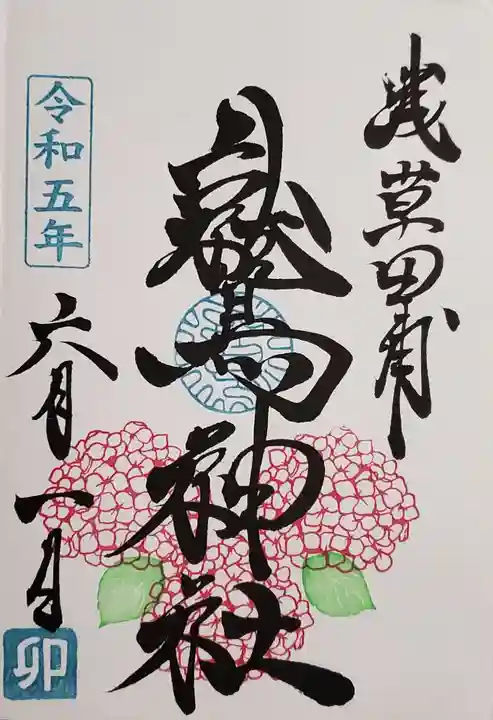 浅草田甫
鷲神社
令和五年
六月一日
卯